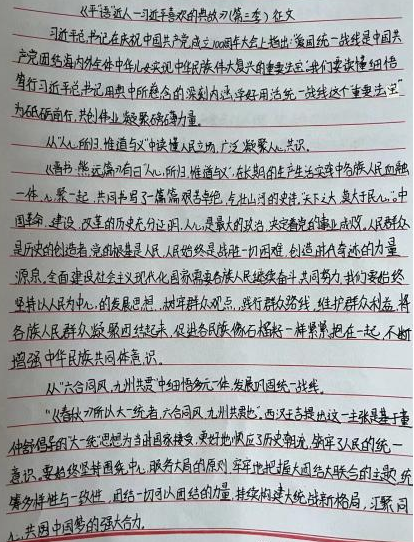 《平"语"近人—习近平喜欢的典故》(第三季)征文
习近平总书记在庆祝中国共产党成立100周年大会上指出:"爱国统一战线是中国共
产党团结海内外全体中华儿女实现中华民族伟大复兴的重要法宝。"我们要读懂细悟
笃行习近平总书记用典中所蕴含的深刻内涵,学好用活统一战线这个"重要法宝"
为砥砺前行,共创伟业凝聚磅礴力量。
从"人心所归,惟道与义"中读懂人民立场,广泛凝聚人心共识。
《晋书·熊远篇》有曰"人心所归,惟道与义",在长期的生产生活实践中各族人民血融
一体,心聚一起,共同书写了一篇篇艰苦卓绝,气壮山河的史诗,"天下之大,莫大于民心。"中
国革命、建设、改革的历史充分证明,人心是最大的政治,决定着党的事业成败,人民群众
是历史的创造者,党的根基是人民,人民始终是战胜一切困难,创造时代奇迹的力量
源泉,全面建设社会主义现代化国家需要各族人民继续奋斗,共同努力,我们要始终
坚持以人民为中心的发展思想,树牢群众观点,践行群众路线,维护群众利益,将
各族人民群众凝聚团结起来,促进各民族像石榴籽一样紧紧抱在一起,不断
增强中华民族共同体意识。
从"六合同风,九州共贯"中细悟多元一体,发展巩固统一战线。
"《春秋》所以大一统者,六合同风,九州共贯也"。西汉王吉提出这一主张是基于董
仲舒倡导的"大一统"思想为当时国家接受,更好地顺应了历史潮流,铸牢了人民的统一
意识。要始终坚持围绕中心、服务大局的原则,牢牢地把握大团结大联合的主题,统
筹多样性与一致性,团结一切可以团结的力量,持续构建大统战新格局,汇聚同
心共圆中国梦的强大合力。